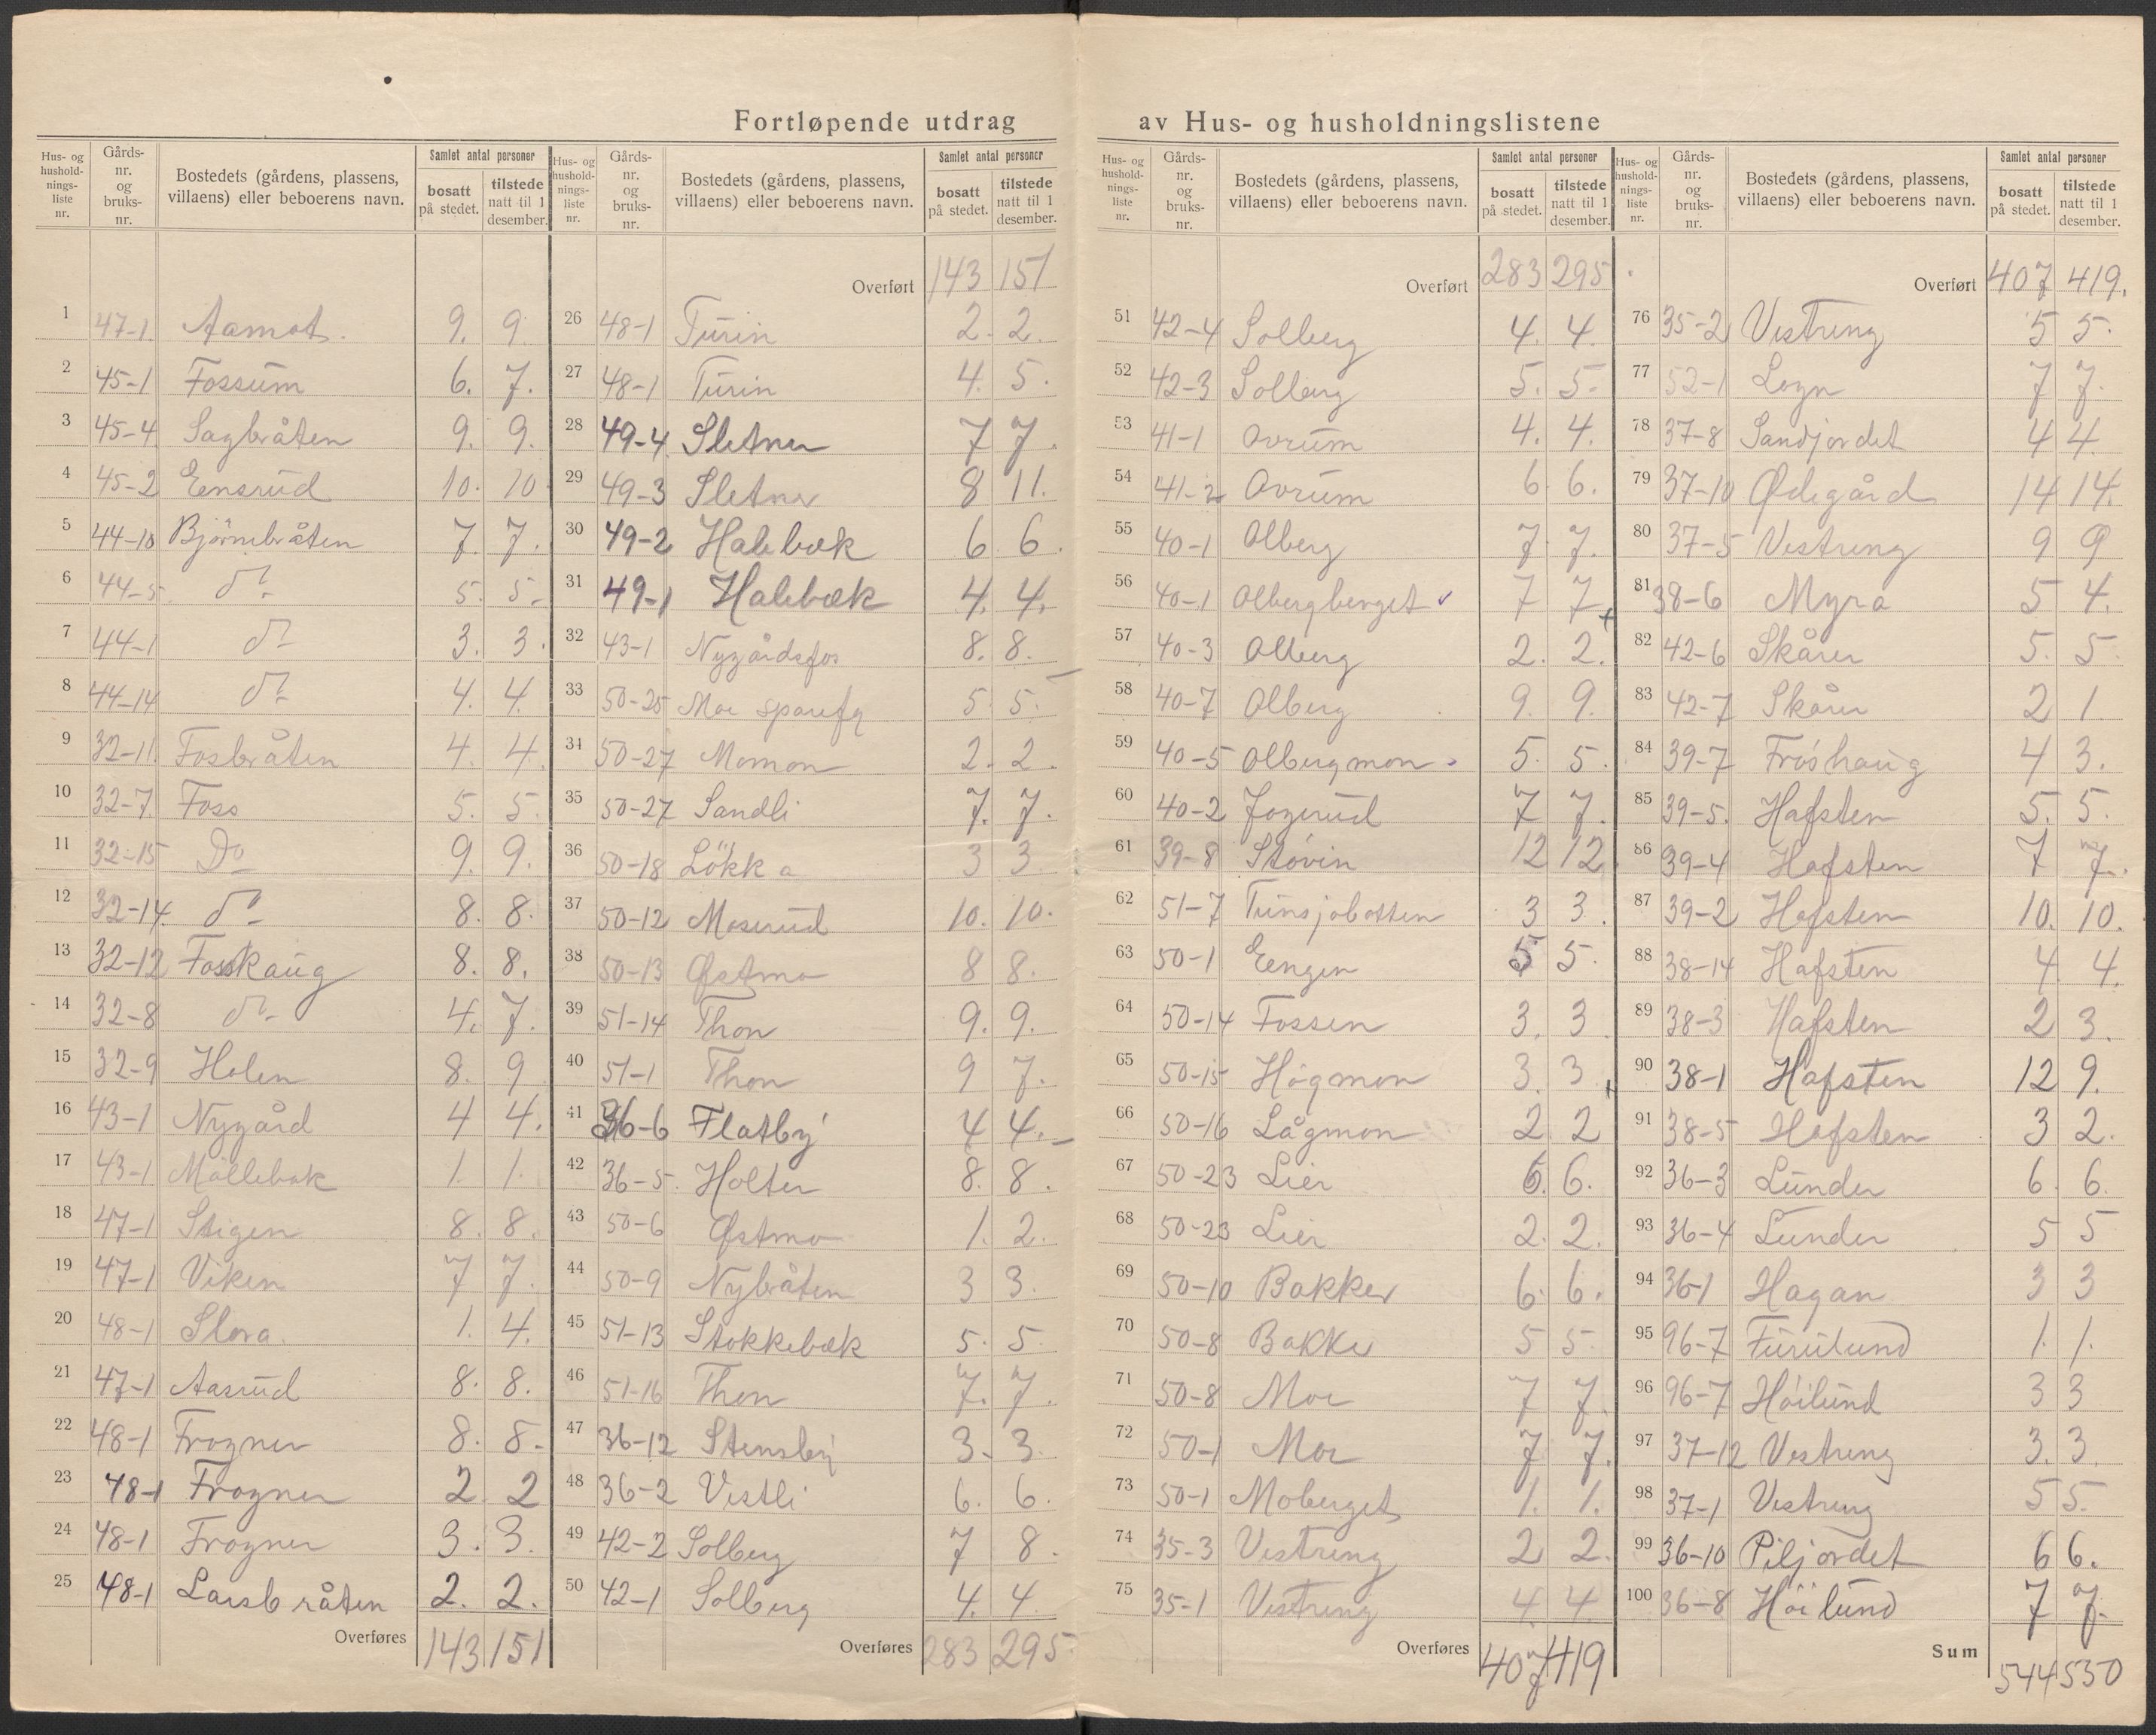 Fortløpende utdrag av Hus- og husholdningslistene
Hus- og husholdnings-liste nr. Gårds-nr. og bruks-nr. Bostedets (gårdens, plassens, villaens) eller beboerens navn. Samlet antal personer bosatt på stedet. tilstede natt til 1 desember.
1 47-1. Aamot. 9. 9.
2 45-1 Fossum 6. 7.
3 45-4 Sagbråten 9. 9.
4 45-2 Eensrud 10. 10
5 44-10 Björnebråten 7. 7.
6 44-5 do 5. 5.
7 44-1 do 3. 3.
8 44-14 do 4. 4.
9 32-11. Fosbråten 4. 4.
10 32-7. Foss 5. 5.
11 32-15 Do 9. 9.
12 32-14. do 8. 8.
13 32-12 Fosshaug 8. 8.
14 32-8 do 4. 7.
15 32-9 Holen 8. 9
16 43-1 Nygård 4 4.
17 43-1 Möllebæk 1. 1.
18 47-1 Stigen 8. 8.
19 47-1 Viken 7 7.
20 48-1 Slora. 1. 4.
21 47-1 Aasrud 8. 8.
22 48-1 Frogner 8. 8.
23 48-1 Frogner 2 2
24 48-1 Frogner 3. 3.
25 48-1 Larsbråten 2. 2.
Overføres 143 151
Hus- og husholdnings-liste nr. Gårds-nr. og bruks-nr. Bostedets (gårdens, plassens, villaens) eller beboerens navn. Samlet antal personer bosatt på stedet. tilstede natt til 1 desember.
Overført 143 151
26 48-1 Turin 2. 2.
27 48-1 Turin 4. 5.
28 49-4 Sletner 7 7.
29 49-3 Sletner 8 11.
30 49-2 Halebæk 6. 6.
31 49-1 Halebæk 4. 4.
32 43-1 Nygårdsfos 8. 8.
33 50-25 Moe 5 5.
34 50-27 Momon 2. 2.
35 50-27 Sandli 7. 7.
36 50-18 Lökka 3 3
37 50-12 Moserud 10. 10.
38 50-13 Østmo 8 8.
39 51-14 Thon 9. 9.
40 51-1 Thon 9 7.
41 36-6 Flatby 4 4.
42 36-5. Holter 8. 8.
43 50-6 Østmo 1. 2.
44 50-9 Nybråten 3 3.
45 51-13 Stokkebæk 5. 5.
46 51-16 Thon 7. 7.
47 36-12 Stensby 3. 3.
48 36-2 Vestli 6. 6.
49 42-2 Solberg 7 8.
50 42-1 Solberg 4. 4.
Overføres 283 295
Hus- og husholdnings-liste nr. Gårds-nr. og bruks-nr. Bostedets (gårdens, plassens, villaens) eller beboerens navn. Samlet antal personer bosatt på stedet. tilstede natt til 1 desember.
Overført 283 295
51 42-4 Solberg 4. 4.
52 42-3 Solberg 5. 5.
53 41-1 Ovrum 4. 4.
54 41-2 Ovrum 6. 6.
55 40-1 Olberg 7. 7.
56 40-1 Olbergberget 7 7
57 40-3 Olberg 2. 2.
58 40-7 Olberg 9. 9.
59 40-5 Olbergmon 5. 5.
60 40-2 Jogerud 7 7.
61 39-8 Stövin 12 12.
62 51-7 Tunsjøbotten 3 3.
63 50-1 Eengen 5 5.
64 50-14 Fossen 3. 3
65 50-15 Högmon 3. 3
66 50-16 Lågmon 2. 2
67 50-23 Lier 6. 6.
68 50-23 Lier 2. 2.
69 50-10 Bakker 6. 6.
70 50-8 Bakke 5 5.
71 50-8 Moe 7 7.
72 50-1 Moe 7 7.
73 50-1 Moberget 1. 1.
74 35-3 Vestreng 2 2.
75 35-1 Vestreng 4. 4
Overføres 407 419
Hus- og husholdnings-liste nr. Gårds-nr. og bruks-nr. Bostedets (gårdens, plassens, villaens) eller beboerens navn. Samlet antal personer bosatt på stedet. tilstede natt til 1 desember.
Overført 407 419.
76 35-2 Vestreng 5 5.
77 52-1 Logn 7 7.
78 37-8 Sandjordet 4 4.
79 37-10 Ødegård 14 14.
80 37-5 Vestreng 9 9
81 38-6 Myra 5 4.
82 42-6 Skårer 5. 5.
83 42-7 Skårer 2 1.
84 39-7 Fröshaug 4 3.
85 39-5. Hafsten 5. 5.
86 39-4 Hafsten 7 7.
87 39-2 Hafsten 10. 10.
88 38-14 Hafsten 4. 4.
89 38-3 Hafsten 2 3.
90 38-1 Hafsten 12 9.
91 38-5 Hafsten 3 2.
92 36-3 Lunder 6. 6.
93 36-4 Lunder 5 5
94 36-1 Hagan 3 3
95 96-7 Furulund 1. 1.
96 96-7 Höilund 3 3
97 37-12 Vestreng 3. 3.
98 37-1 Vestreng 5 5.
99 36-10 Piljordet 6 6.
100 36-8 Höilund 7 7.
Sum 544 530